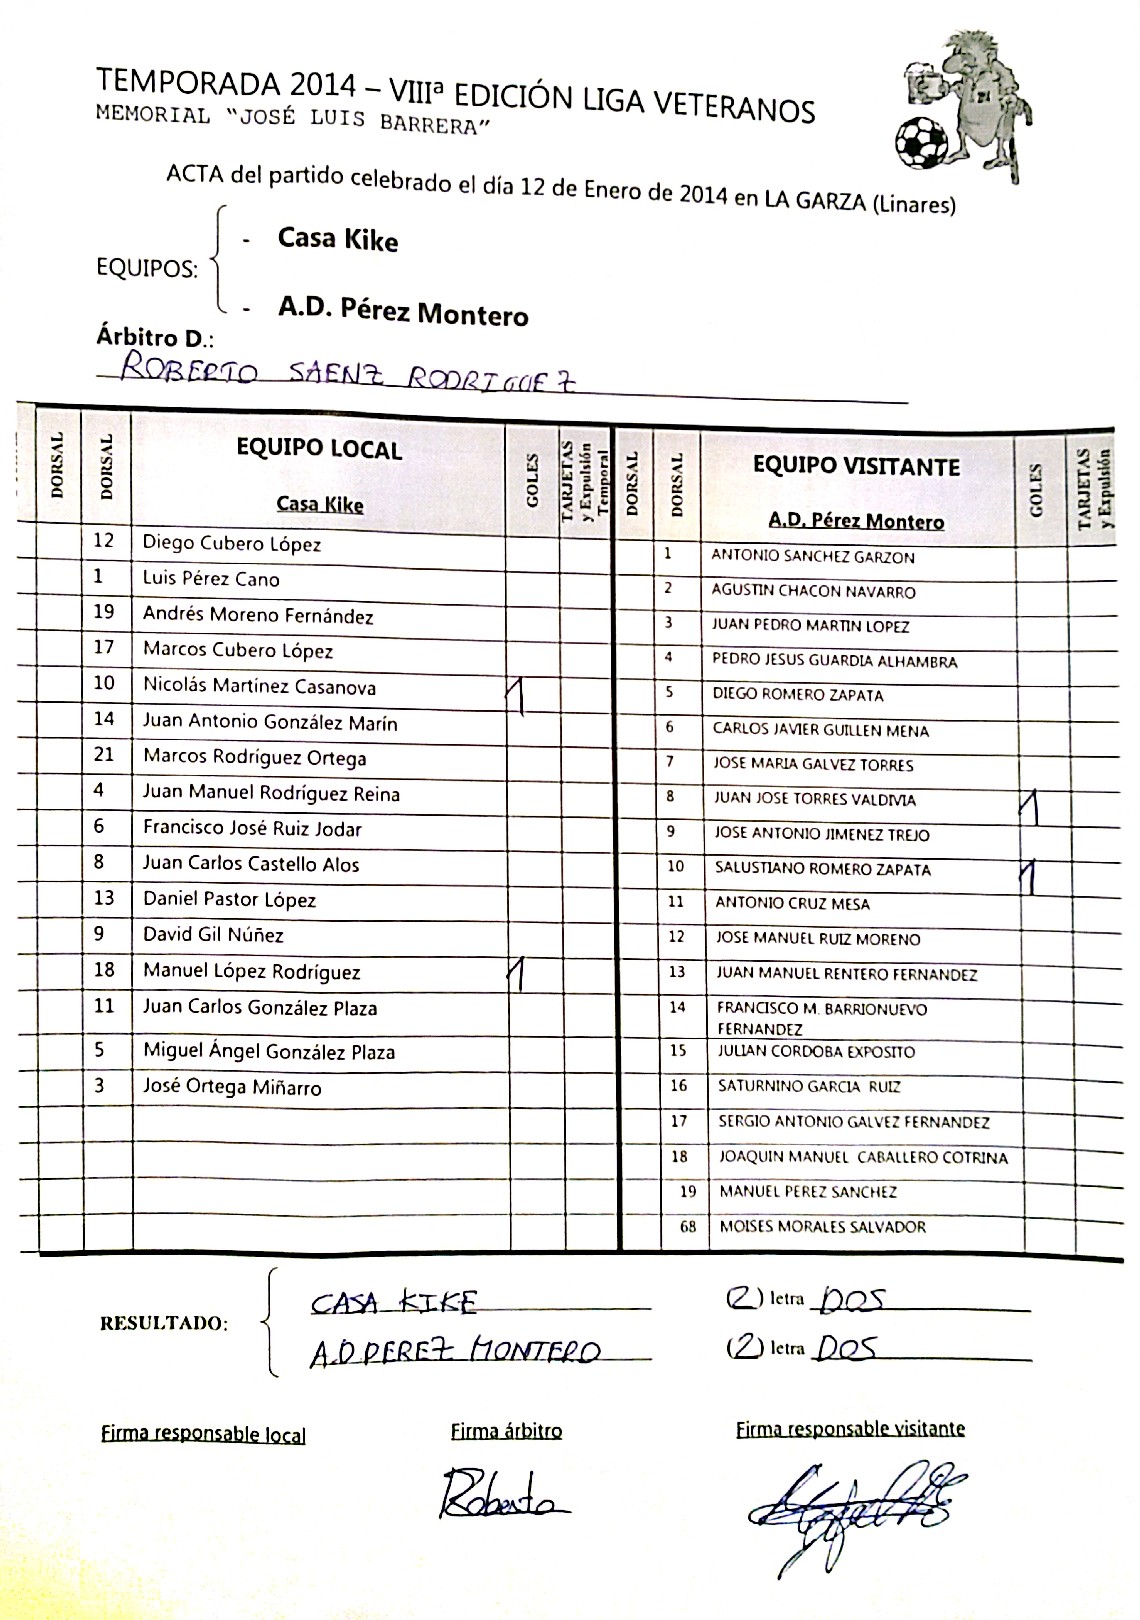 TEMPORADA 2014 – VIIIª EDICIÓN LIGA VETERANOS
MEMORIAL “JOSÉ LUIS BARRERA”
ACTA del partido celebrado el día 12 de Enero de 2014 en LA GARZA (Linares)
EQUIPOS:
- Casa Kike
- A.D. Pérez Montero
Árbitro D.:
ROBERTO SAENZ RODRIGUEZ
DORSAL DORSAL EQUIPO LOCAL Casa Kike GOLES TARJETAS y Expulsión Temporal DORSAL DORSAL EQUIPO VISITANTE A.D. Pérez Montero GOLES TARJETAS y Expulsión
12 Diego Cubero López 1 ANTONIO SANCHEZ GARZON
1 Luis Pérez Cano 2 AGUSTIN CHACON NAVARRO
19 Andrés Moreno Fernández 3 JUAN PEDRO MARTIN LOPEZ
17 Marcos Cubero López 4 PEDRO JESUS GUARDIA ALHAMBRA
10 Nicolás Martínez Casanova 1 5 DIEGO ROMERO ZAPATA
14 Juan Antonio González Marín 6 CARLOS JAVIER GUILLEN MENA
21 Marcos Rodríguez Ortega 7 JOSE MARIA GALVEZ TORRES
4 Juan Manuel Rodríguez Reina 8 JUAN JOSE TORRES VALDIVIA 1
6 Francisco José Ruiz Jodar 9 JOSE ANTONIO JIMENEZ TREJO
8 Juan Carlos Castello Alos 10 SALUSTIANO ROMERO ZAPATA 1
13 Daniel Pastor López 11 ANTONIO CRUZ MESA
9 David Gil Núñez 12 JOSE MANUEL RUIZ MORENO
18 Manuel López Rodríguez 1 13 JUAN MANUEL RENTERO FERNANDEZ
11 Juan Carlos González Plaza 14 FRANCISCO M. BARRIONUEVO
FERNANDEZ
5 Miguel Ángel González Plaza 15 JULIAN CORDOBA EXPOSITO
3 José Ortega Miñarro 16 SATURNINO GARCIA RUIZ
17 SERGIO ANTONIO GALVEZ FERNANDEZ
18 JOAQUIN MANUEL CABALLERO COTRINA
19 MANUEL PEREZ SANCHEZ
68 MOISES MORALES SALVADOR
RESULTADO:
CASA KIKE (2) letra DOS
A.D PEREZ MONTERO (2) letra DOS
Firma responsable local Firma árbitro Firma responsable visitante
Roberto